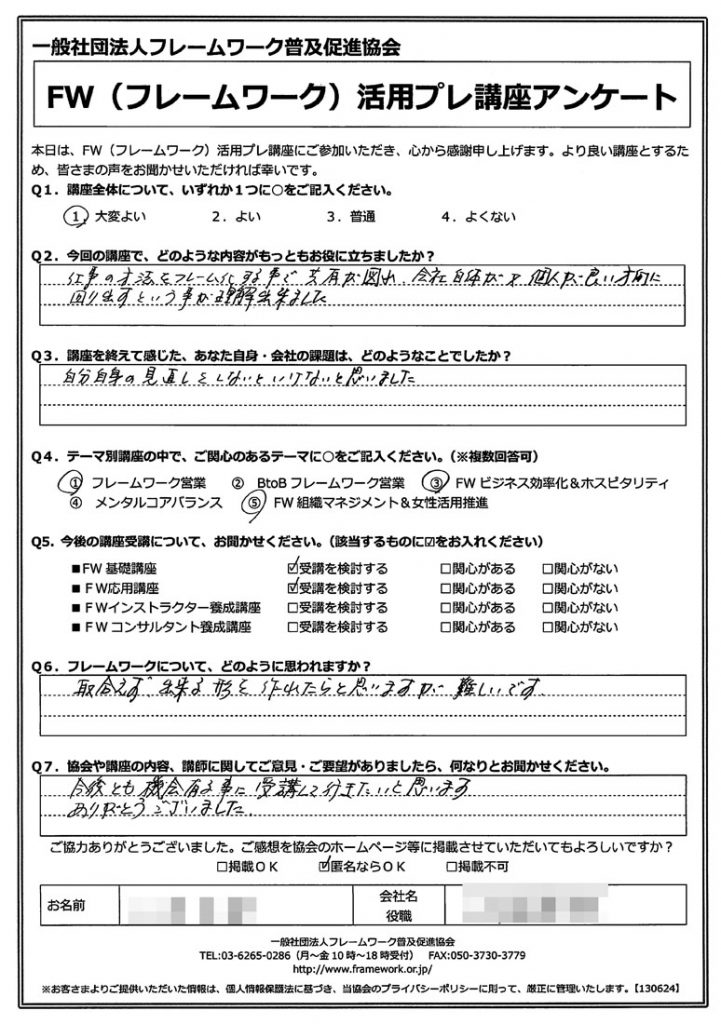 一般社団法人フレームワーク普及促進協会
FW（フレームワーク）活用プレ講座アンケート
本日は、FW（フレームワーク）活用プレ講座にご参加いただき、心から感謝申し上げます。より良い講座とするた
め、皆さまの声をお聞かせいただければ幸いです。
Q1．講座全体について、いずれか１つに○をご記入ください。
1．大変よい　2．よい　3．普通　4．よくない
Q2．今回の講座で、どのような内容がもっともお役に立ちましたか？
仕事の方法をフレーム化する事で共有が図れ、会社自体が 個人が良い方向に
回り出すという事が理解出来ました
Q3．講座を終えて感じた、あなた自身・会社の課題は、どのようなことでしたか？
自分自身の見直しをしないといけないと思いました
Q4．テーマ別講座の中で、ご関心のあるテーマに○をご記入ください。（※複数回答可）
① フレームワーク営業　② BtoB フレームワーク営業　③ FW ビジネス効率化＆ホスピタリティ
④ メンタルコアバランス　⑤ FW 組織マネジメント＆女性活用推進
Q5．今後の講座受講について、お聞かせください。（該当するものに☑をお入れください）
■FW 基礎講座　☑受講を検討する　□関心がある　□関心がない
■ＦＷ応用講座　☑受講を検討する　□関心がある　□関心がない
■ＦＷインストラクター養成講座　□受講を検討する　□関心がある　□関心がない
■ＦＷコンサルタント養成講座　□受講を検討する　□関心がある　□関心がない
Q６．フレームワークについて、どのように思われますか？
取合えず、出来る形を作れたらと思いますが 難しいです
Q７．協会や講座の内容、講師に関してご意見・ご要望がありましたら、何なりとお聞かせください。
今後とも機会有る事に受講して行きたいと思います
ありがとうございました.
ご協力ありがとうございました。ご感想を協会のホームページ等に掲載させていただいてもよろしいですか？
□掲載ＯＫ　☑匿名ならＯＫ　□掲載不可
お名前　会社名
役職
一般社団法人フレームワーク普及促進協会
TEL:03-6265-0286（月～金 10 時～18 時受付）　FAX:050-3730-3779
http://www.framework.or.jp/
※お客さまよりご提供いただいた情報は、個人情報保護法に基づき、当協会のプライバシーポリシーに則って、厳正に管理いたします。【130624】